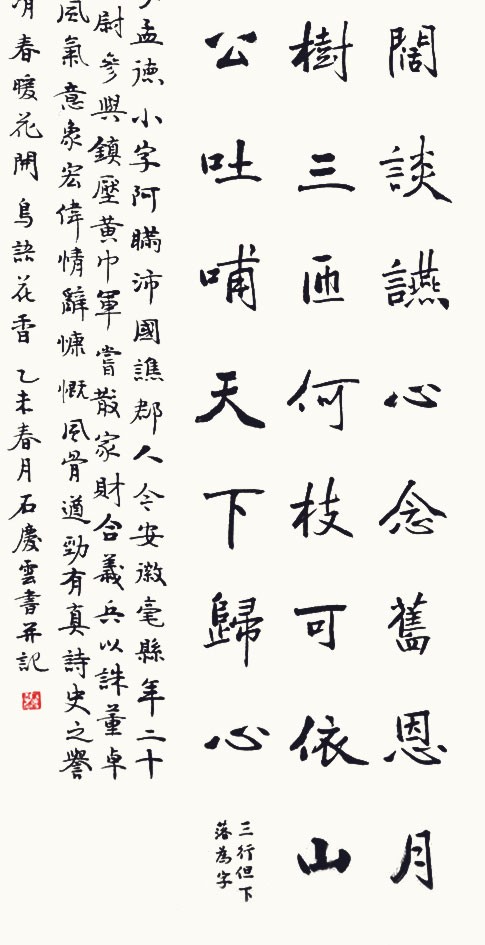 闊談讌心念舊恩月
樹三匝何枝可依山
公吐哺天下歸心
三行但下
落為字
孟德小字阿瞞沛國譙郡人今安徽毫縣年二十
尉參與鎮壓黃巾軍嘗散家財合義兵以誅董卓
風氣意象宏偉情辭慷慨風骨遒勁有真詩史之譽
春暖花開鳥語花香乙未春月石慶雲書并記